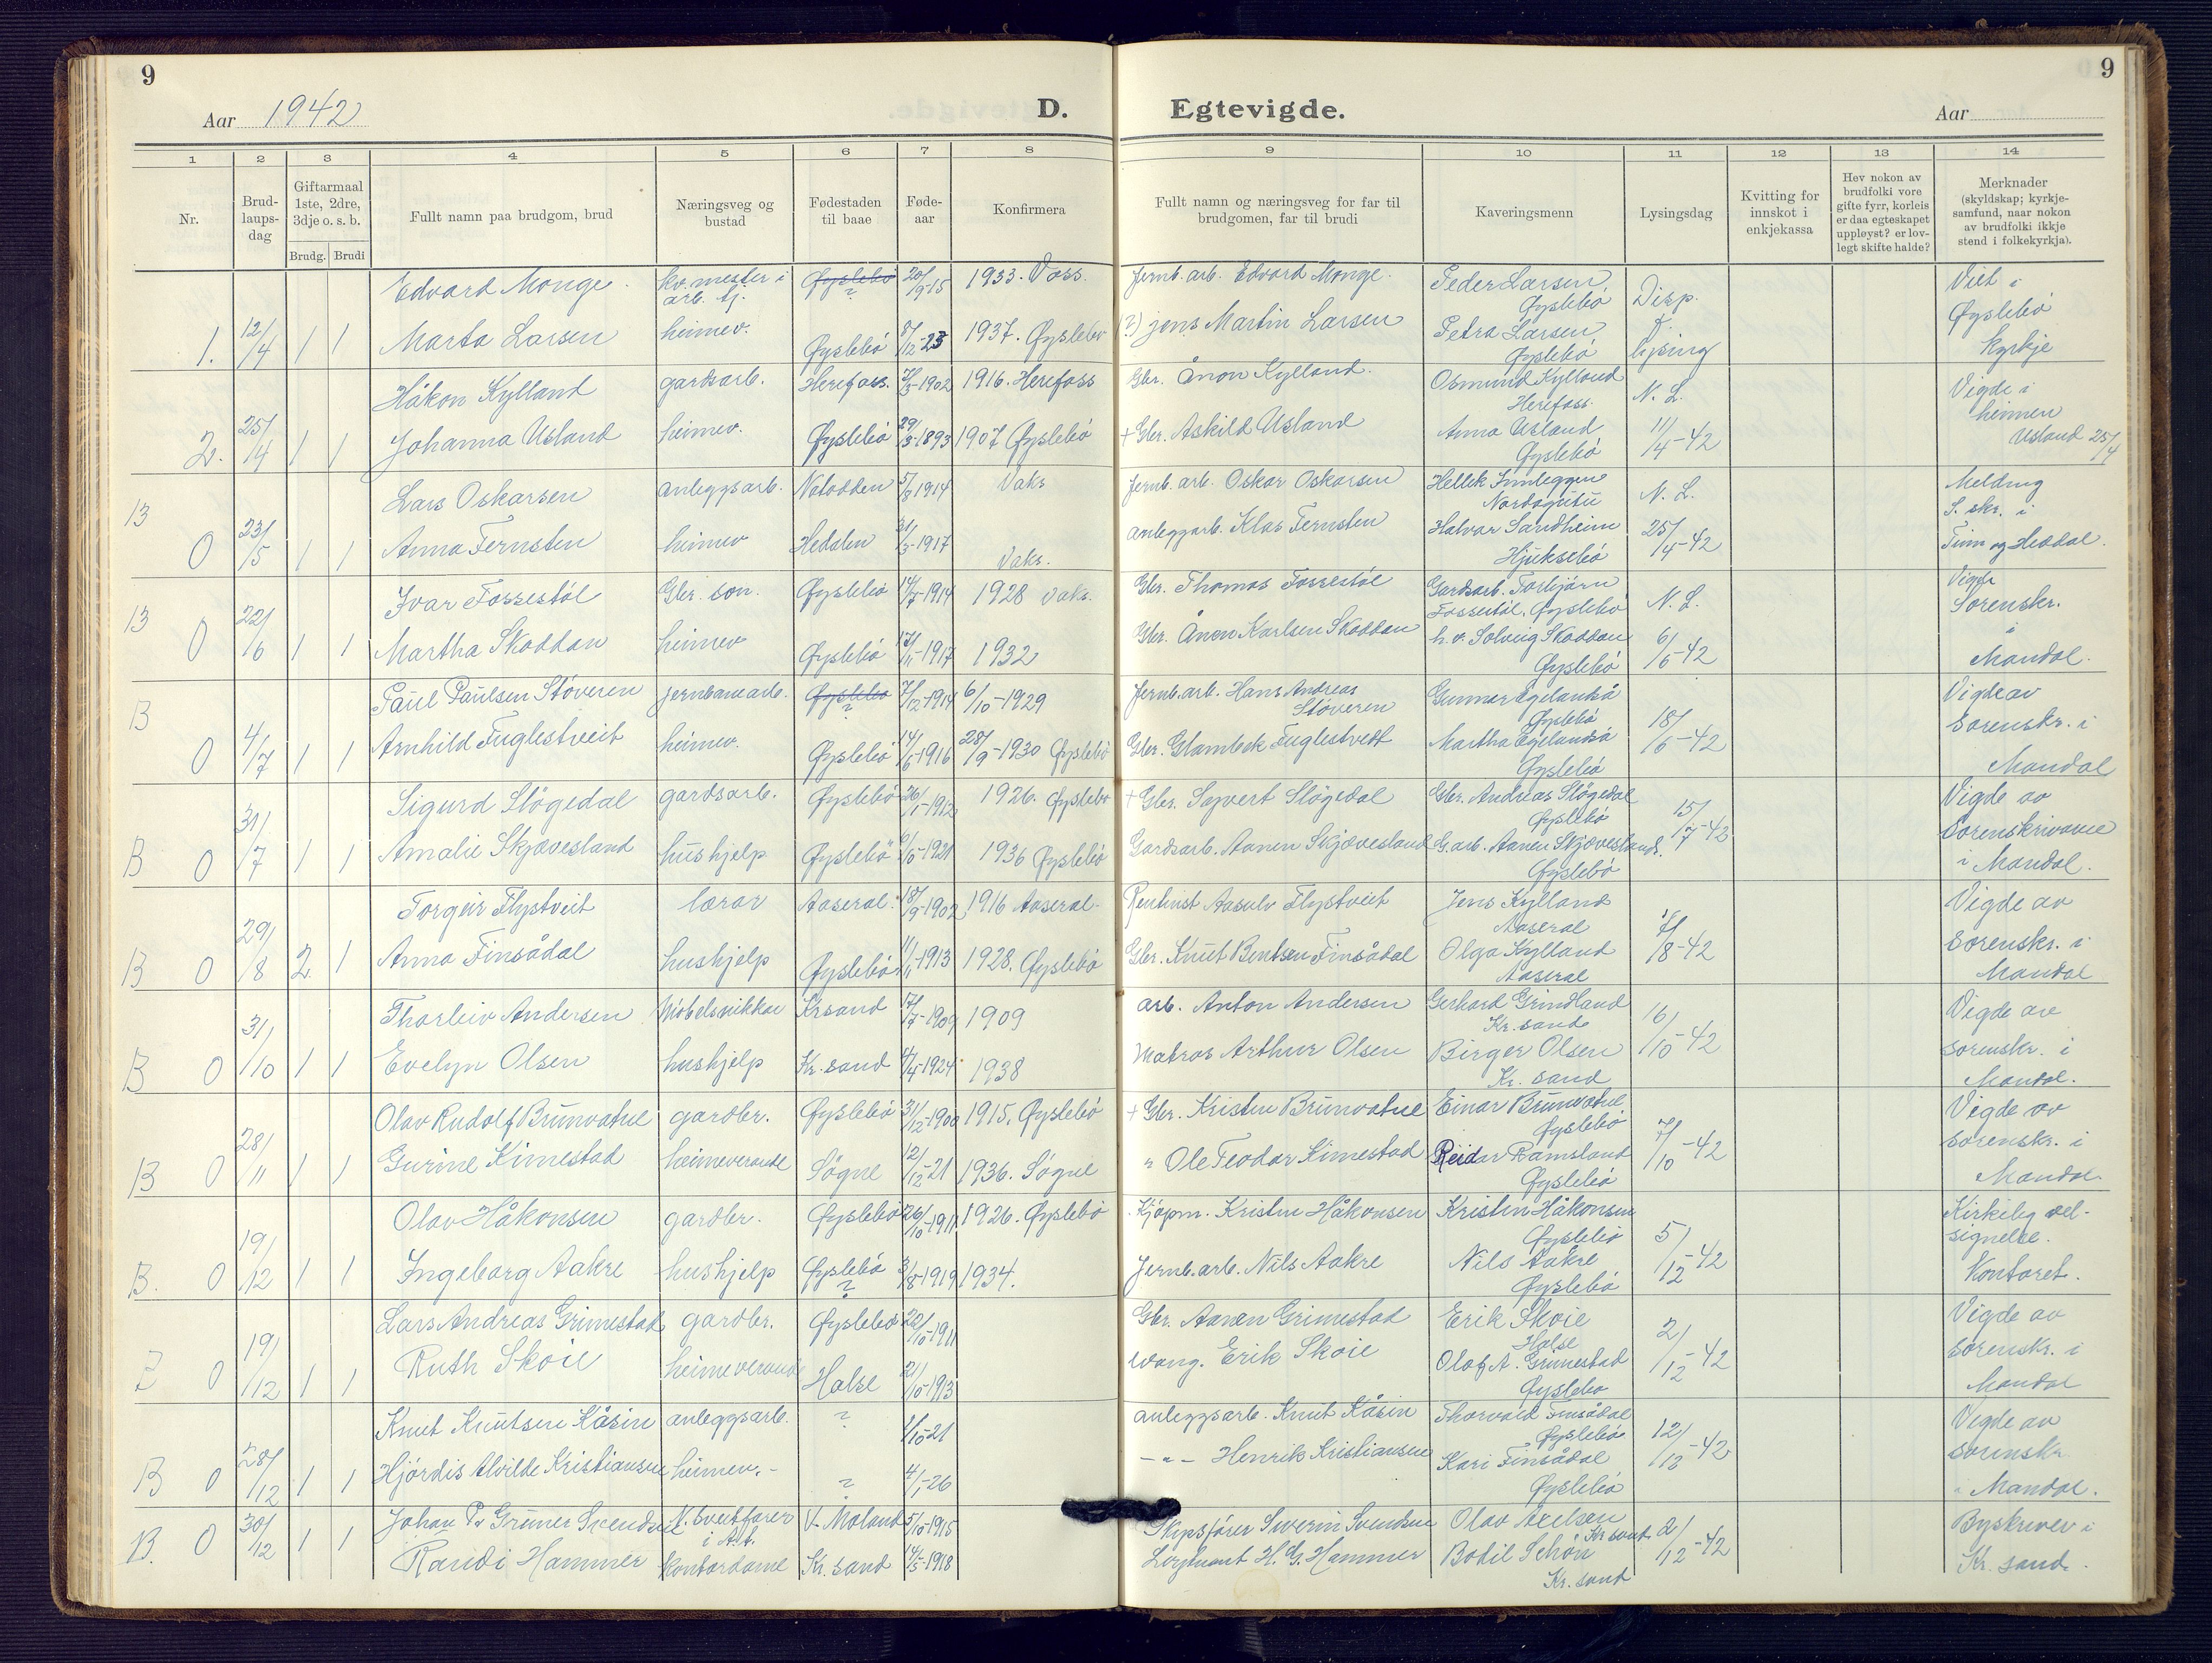 9
Aar 1942
D.
Egtevigde.
Aar
9
1 2 3 4 5 6 7 8 9 10 11 12 13 14
Nr.
Brud-
laups-
dag
Giftarmaal
1ste, 2dre,
3dje o. s. b.
Brudg. Brudi
Fullt namn paa brudgom, brud
Næringsveg og
bustad
Fødestaden
til baae
Føde-
aar
Konfirmera
Fullt namn og næringsveg for far til
brudgomen, far til brudi
Kaveringsmenn
Lysingsdag
Kvitting for
innskot i
enkjekassa
Hev nokon av
brudfolki vore
gifte fyrr, korleis
er daa egteskapet
uppløyst? er lov-
legt skifte halde?
Merknader
(skyldskap; kyrkje-
samfund, naar nokon
av brudfolki ikkje
stend i folkekyrkja).
Edvard Monge. kv.mester i arb. tj. Øyslebö ? 20/9-15 1933. Voss. Jernb. arb. Edvard Monge. Peder Larsen, Øyslebö Disp. Viet i
1. 12/4 1 1 Marta Larsen heimev. Øyslebö 8/12-23 1937. Øyslebö (?) Jens Martin Larsen Petra Larsen Øyslebö f. lysing Øyslebö kyrkje
Håkon Kylland gardsarb. Herefoss. 7/3-1902 1916. Herefoss Gbr. Ånon Kylland. Osmund Kylland Herefoss. N. L. Vigde i
2. 25/4 1 1 Johanna Usland heimev. Øyslebö 29/3-1893 1907 Øyslebö + Gbr. Askild Usland Anna Usland Øyslebö 11/4-42 heimen Usland 25/4
B Lars Oskarsen anleggsarb. Notodden 5/8 1914 Vaks Jernb. arb. Oskar Oskarsen Hellek Innleggen Nordagutu N. L. Melding S. skr. i
0 23/5 1 1 Anna Fernsten heimev Hedalen 31/3-1917 Vaks. anleggarb. Klas Fernsten Halvar Sandheim Hjuksebö 25/4-42 Tinn og Heddal.
B Ivar Fossestöl Gbr. son. Øyslebö 14/7-1914 1928 vaks. Gbr. Thomas Fossestöl Gardsarb. Torbjörn Fossestöl, Øyslebö N. L. Vigde Sorenskr.
0 22/6 1 1 Martha Skoddan heimev Øyslebö 17/11-1917 1932 Gbr. Ånen Karlsen Skoddan h.v. Solveig Skoddan Øyslebö 6/6-42 i Mandal.
B Paul Paulsen Stöveren jernbanearb. Øyslebö ? 7/12-1914 6/10-1929 Jernb.arb. Hans Andreas Stöveren Gunnar Egelandså Øyslebö Vigde av
0 4/7 1 1 Arnhild Fuglestveit heimev. Øyslebö 14/6-1916 28/9-1930 Øyslebö Gbr. Glambek Fuglestvedt Martha Egelandså Øyslebö 18/6-42 sorenskr. i Mandal
Sigurd Stögedal gardsarb. Øyslebö 26/1-1912 1926. Øyslebö + Gbr. Syvert Stögedal Gbr. Andreas Stögedal Øyslebö 15/7-42 Vigde av
B 0 31/7 1 1 Amalie Skjævesland hushjelp Øyslebö 9/10-1921 1936 Øyslebö Gardsarb. Aanen Skjævesland G.arb. Aanen Skjævesland. Øyslebö Sorenskrivaren i Mandal.
Torgeir Flystveit lærar Aaseral. 18/9-1902 1916 Aaseral- Rentnist Aasulv Flystveit Jens Kylland Aaseral Vigde av
B 0 29/8 2 1 Anna Finsådal hushjelp Øyslebö 11/11-1913 1928. Øyslebö Gbr. Knut Bentsen Finsådal Olga Kylland Aaseral 7/8-42 Sorenskr. i Mandal
Thorleiv Andersen Möbelsnikkar Krsand 17/7-1909 1909 arb. Anton Andersen Gerhard Grindland Kr. sand 16/10-42 Vigde av
B 0 31/10 1 1 Evelyn Olsen hushjelp Kr. sand 4/4-1924 1938 Matros Arthur Olsen Birger Olsen Kr. sand sorenskr. i Mandal.
Olav Rudolf Brunvatne gardbr. Øyslebö 31/12-1900 1915. Øyslebö + Gbr. Kristen Brunvatne Einar Brunvatne Øyslebö Vigde av
B 0 28/11 1 1 Gurine Kimestad heimeverande Sögne 12/12-21 1936. Sögne " Ole Teodor Kimestad Reidar Ramsland Øyslebö 7/10-42 sorenskr. i Mandal.
Olav Håkonsen gardbr. Øyslebö 26/10-1911 1926. Øyslebö Kjöpm. Kristen Håkonsen Kristen Håkonsen Øyslebö Kirkileg vel-signelse.
B. 0 19/12 1 1 Ingeborg Aakre hushjelp Øyslebö ? 3/8-1919 1934. Jernb.arb. Nils Aakre Nils Aakre Øyslebö 5/12-42 Kontoret.
Lars Andreas Grimestad gardbr. Øyslebö 22/10-1911 Gbr. Aanen Grimestad Erik Skoie Halse Vigde av
0 19/12 1 1 Ruth Skoie heimeverande Halse 21/10-1913 Erik Skoie Olaf A. Grimestad Øyslebö 2/12-42 sorenskr. i Mandal
Knut Knutsen Kåsin anleggsarb. ? 1/10-21 anleggsarb. Knut Kåsin Thorvald Finsådal Øyslebö Vigde av
B 0 28/12 1 1 Hjördis Alvilde Kristiansen heimev. - ? 4/1-26 - " - Henrik Kristiansen Kari Finsådal Øyslebö 12/12-42 sorenskr. i Mandal.
Johan P. Grüner Svendsen N. Sveitförer i A.t. V. Moland 5/10-1915 Skipsförer Severin Svendsen Olav Axelsen Kr sand Byskriver i
B. 0 30/12 1 1 Randi Hammer Kontordame Kr. sand 14/5-1918 H. G. Hammer Bodil Schön Kr. sand 2/12-42 Kr. sand.